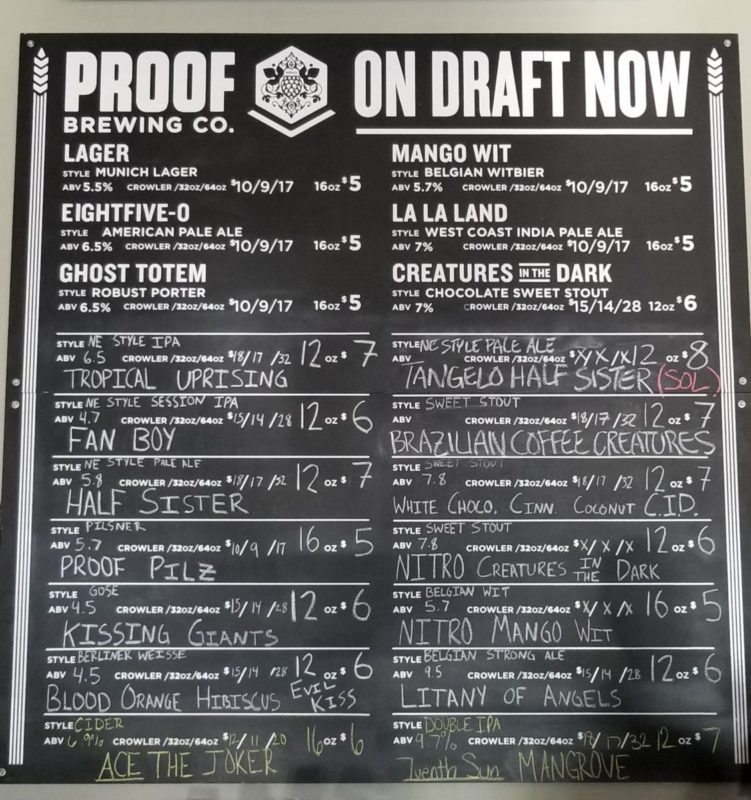 PROOF
BREWING CO.
ON DRAFT NOW
LAGER
STYLE MUNICH LAGER
ABV 5.5% CROWLER /32oz/64oz $10/9/17 16oz $5
EIGHTFIVE-O
STYLE AMERICAN PALE ALE
ABV 6.5% CROWLER /32oz/64oz $10/9/17 16oz $5
GHOST TOTEM
STYLE ROBUST PORTER
ABV 6.5% CROWLER /32oz/64oz $10/9/17 16oz $5
STYLE NE STYLE IPA
ABV 6.5 CROWLER /32oz/64oz $18/17/32 12 oz $7
TROPICAL UPRISING
STYLE NE STYLE SESSION IPA
ABV 4.7 CROWLER /32oz/64oz $15/14/28 12 oz $6
FAN BOY
STYLE NE STYLE PALE ALE
ABV 5.8 CROWLER /32oz/64oz $18/17/32 12 oz $7
HALF SISTER
STYLE PILSNER
ABV 5.7 CROWLER /32oz/64oz $10/9/17 16 oz $5
PROOF PILZ
STYLE GOSE
ABV 4.5 CROWLER /32oz/64oz $15/14/28 12 oz $6
KISSING GIANTS
STYLE BERLINER WEISSE
ABV 4.5 CROWLER /32oz/64oz $15/14/28 12 oz $6
BLOOD ORANGE HIBISCUS EVIL KISS
STYLE CIDER
ABV 6.9% CROWLER /32oz/64oz $12/11/20 16 oz $6
ACE THE JOKER
MANGO WIT
STYLE BELGIAN WITBIER
ABV 5.7% CROWLER /32oz/64oz $10/9/17 16oz $5
LA LA LAND
STYLE WEST COAST INDIA PALE ALE
ABV 7% CROWLER /32oz/64oz $10/9/17 16oz $5
CREATURES IN THE DARK
STYLE CHOCOLATE SWEET STOUT
ABV 7% CROWLER /32oz/64oz $15/14/28 12oz $6
STYLE NE STYLE PALE ALE
ABV CROWLER /32oz/64oz $X/X/X 12 oz $8
TANGELO HALF SISTER (SOL)
STYLE SWEET STOUT
ABV CROWLER /32oz/64oz $18/17/32 12 oz $7
BRAZILIAN COFFEE CREATURES
STYLE SWEET STOUT
ABV 7.8 CROWLER /32oz/64oz $18/17/32 12 oz $7
WHITE CHOCO, CINN, COCONUT C.I.D.
STYLE SWEET STOUT
ABV 7.8 CROWLER /32oz/64oz $X/X/X 12 oz $6
NITRO CREATURES IN THE DARK
STYLE BELGIAN WIT
ABV 5.7 CROWLER /32oz/64oz $X/X/X 16 oz $5
NITRO MANGO WIT
STYLE BELGIAN STRONG ALE
ABV 9.5 CROWLER /32oz/64oz $15/14/28 12 oz $6
LITANY OF ANGELS
STYLE DOUBLE IPA
ABV 9.7% CROWLER /32oz/64oz $18/17/32 12 oz $7
7venth Sun MANGROVE